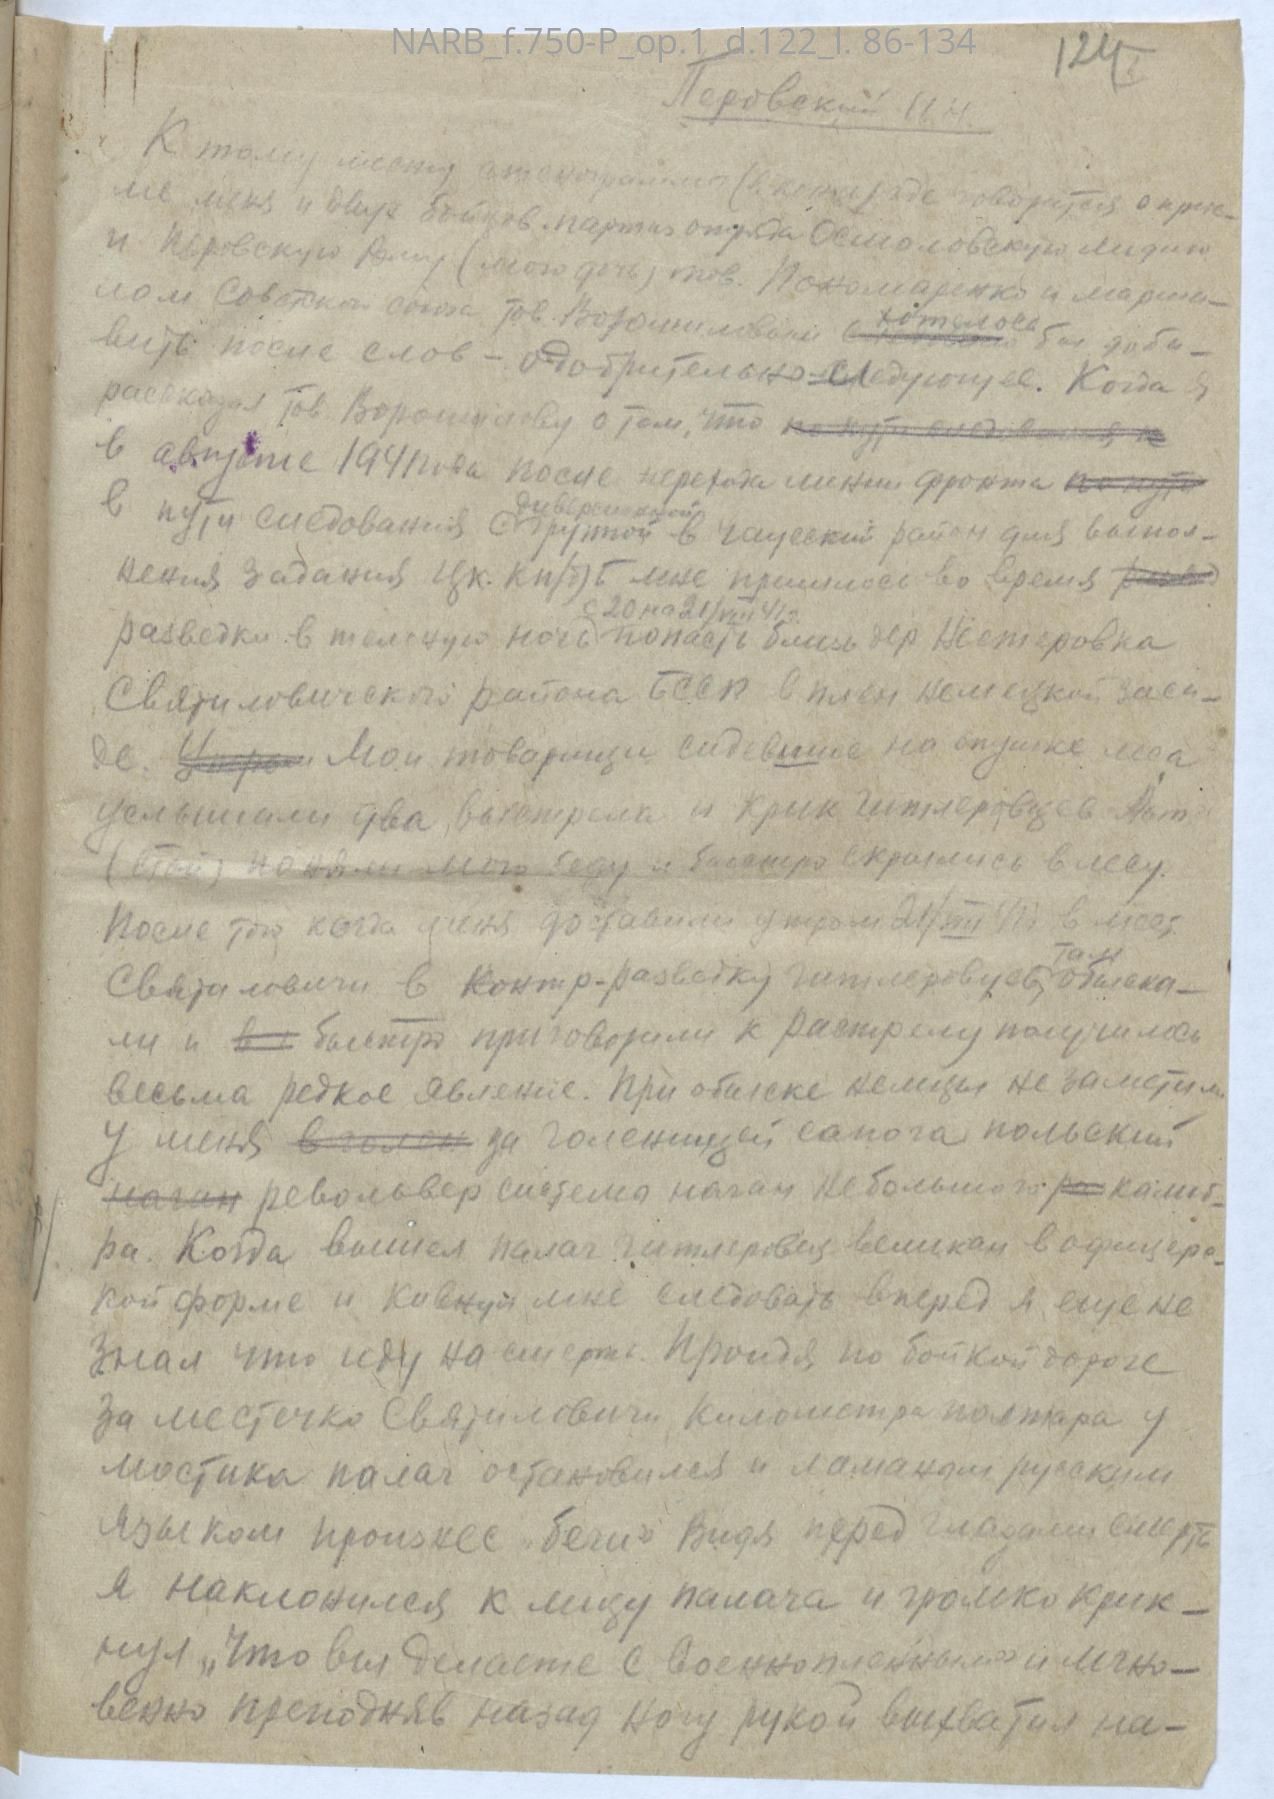 NARB_f.750-P_op.1_d.122_l. 86-134
124
Перовский Н.Н.
К тому месту стенограммы (в конце) где говорится о прие-
ме меня и двух бойцов партиз отряда Осмоловскую Лидию
и Перовскую Аллу (мою дочь) тов. Пономаренко и марша-
лом Советского союза тов. Ворошиловым хотелось бы доба-
вить после слов – одобрительно следующее. Когда я
рассказал тов. Ворошилову о том, что по пути следования в
в августе 1941 года после перехода линии фронта по пути
в пути следования с диверсионной группой в Чаусский район для выпол-
нения задания цк. кп(б)б мне пришлось во время развед
разведки в темную ночь с 20 на 21/VIII 41г. попасть близь дер Нестеровка
Святиловичского района БССР в плен немецкой заса-
де. Мои товарищи сидевшие на опушке леса
услышали два выстрела и крик гитлеровцев
(стой) поняли мою беду и быстро скрылись в лесу.
После того когда меня доставили утром 21/VIII 41г в мест.
Святиловичи в контр-разведку гитлеровцев, там обыска-
ли и быстро приговорили к расстрелу получилось
весьма редкое явление. При обыске немцы не заметили
у меня в голен за голенищей сапога польский
наган револьвер система наган небольшого калиб-
ра. Когда вышел палач гитлеровец великан в офицерс-
кой форме и кивнул мне следовать вперед я еще не
знал что иду на смерть. Пройдя по бойкой дороге
за местечко Святиловичи километра полтора у
мостика палач остановился и ломаным русским
языком произнес „беги" Видя перед глазами смерть
я наклонился к лицу палача и громко крик-
нул „Что вы делаете с военнопленным" и мгно-
венно преподняв назад ногу рукой выхватил на-